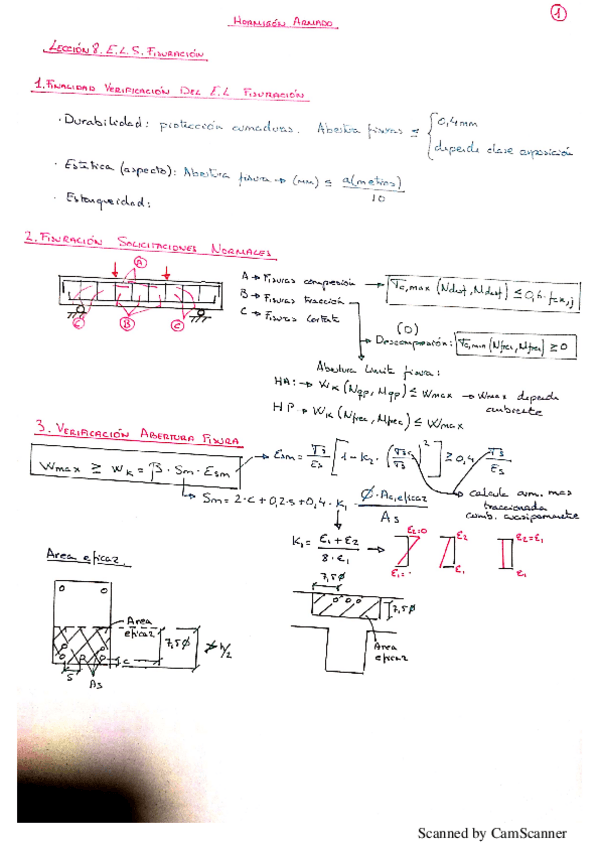 1
HORMIGÓN ARMADO
LECCIÓN 8. E.L.S. FISURACIÓN
1. FINALIDAD VERIFICACIÓN DEL E.L FISURACIÓN
· Durabilidad: protección armaduras. Abertura fisuras ≤ { 0,4mm
depende clase exposición
· Estética (aspecto): Abertura fisura → (mm) ≤ a(metros)/10
· Estanqueidad:
2. FISURACIÓN SOLICITACIONES NORMALES
A
B
C
C
A → Fisuras compresión → σc,max (Ndesf, Mdesf) ≤ 0,6·fck,j
B → Fisuras tracción
C → Fisuras cortante
(0)
Descompresión: σc,min (Nfrec, Mfrec) ≥ 0
Abertura límite fisura:
HA: → WK (Nqp, Mqp) ≤ Wmax → Wmax depende ambiente
HP → WK (Nfrec, Mfrec) ≤ Wmax
3. VERIFICACIÓN ABERTURA FISURA
Wmax ≥ WK = β · Sm · Esm
→ Esm = σs/Es [1 - K2 · (σsr/σs)²] ≥ 0,4 σs/Es
→ Sm = 2·c + 0,2·s + 0,4 · K1 · Ø·Ac,eficaz/As
calcula arm. mas traccionada
comb. cuasipermanente
K1 = ε1 + ε2 / 8·ε1 →
ε2=0
ε1
ε2
ε1
ε2=ε1
ε1
Area eficaz
Area eficaz
7,5Ø
h/2
c
s
As
7,5Ø
7,5Ø
Area eficaz
Scanned by CamScanner